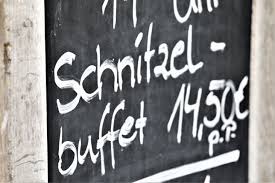 11 Uhr
Schnitzel-
buffet 14,50€
p.P.